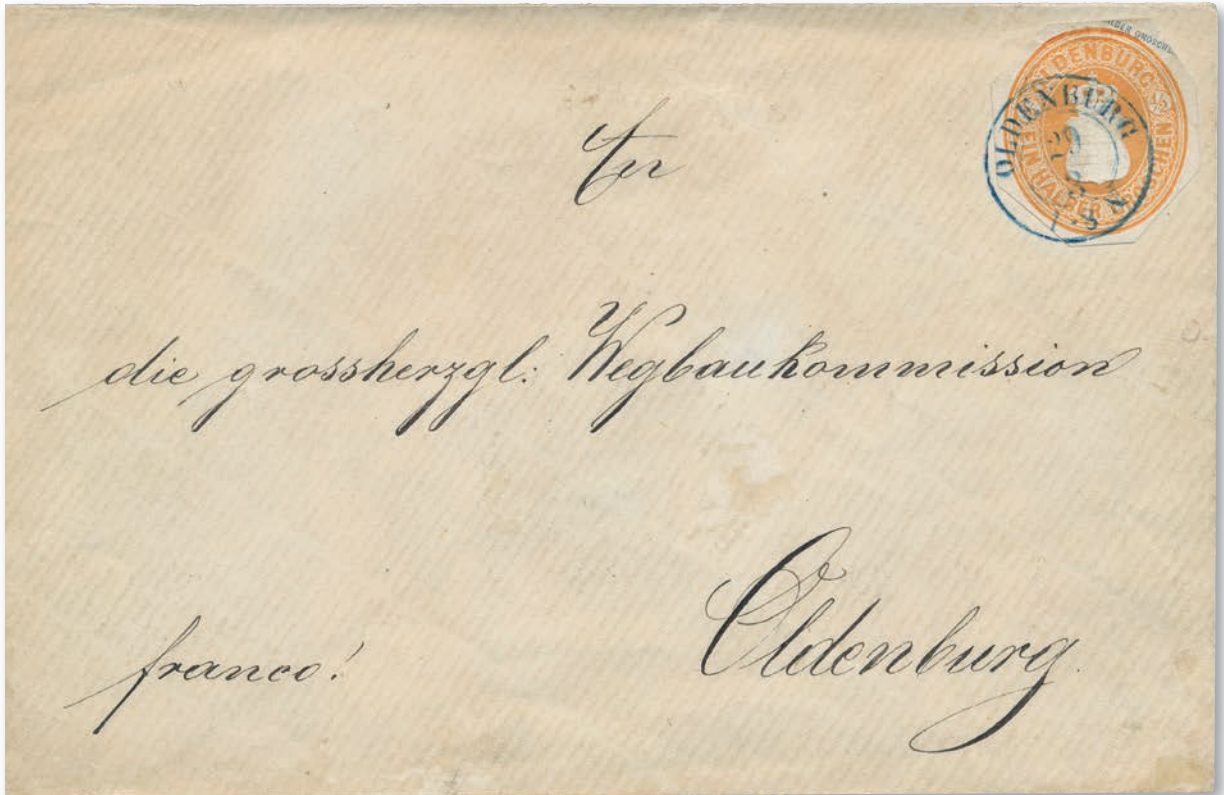 OLDENBURG ½
HALBER GROSCHEN
OLDENBURG
29
An
die grossherzgl: Wegbaukommission
Oldenburg.
franco!